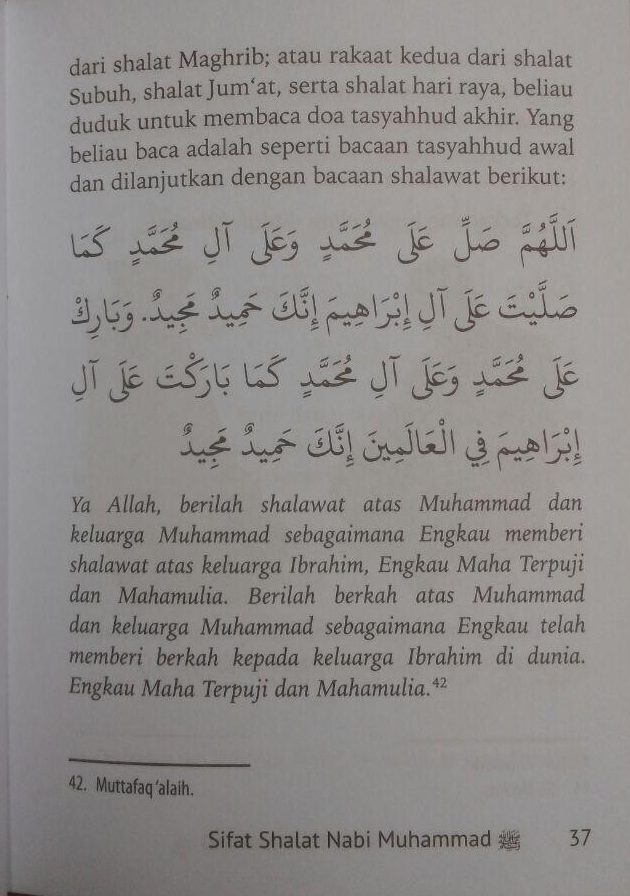 dari shalat Maghrib; atau rakaat kedua dari shalat
Subuh, shalat Jum‘at, serta shalat hari raya, beliau
duduk untuk membaca doa tasyahhud akhir. Yang
beliau baca adalah seperti bacaan tasyahhud awal
dan dilanjutkan dengan bacaan shalawat berikut:
اَللَّهُمَّ صَلِّ عَلَى مُحَمَّدٍ وَعَلَى آلِ مُحَمَّدٍ كَمَا
صَلَّيْتَ عَلَى آلِ إِبْرَاهِيمَ إِنَّكَ حَمِيدٌ مَجِيدٌ. وَبَارِكْ
عَلَى مُحَمَّدٍ وَعَلَى آلِ مُحَمَّدٍ كَمَا بَارَكْتَ عَلَى آلِ
إِبْرَاهِيمَ فِي الْعَالَمِينَ إِنَّكَ حَمِيدٌ مَجِيدٌ
Ya Allah, berilah shalawat atas Muhammad dan
keluarga Muhammad sebagaimana Engkau memberi
shalawat atas keluarga Ibrahim, Engkau Maha Terpuji
dan Mahamulia. Berilah berkah atas Muhammad
dan keluarga Muhammad sebagaimana Engkau telah
memberi berkah kepada keluarga Ibrahim di dunia.
Engkau Maha Terpuji dan Mahamulia.⁴²
42. Muttafaq ‘alaih.
Sifat Shalat Nabi Muhammad ﷺ 37